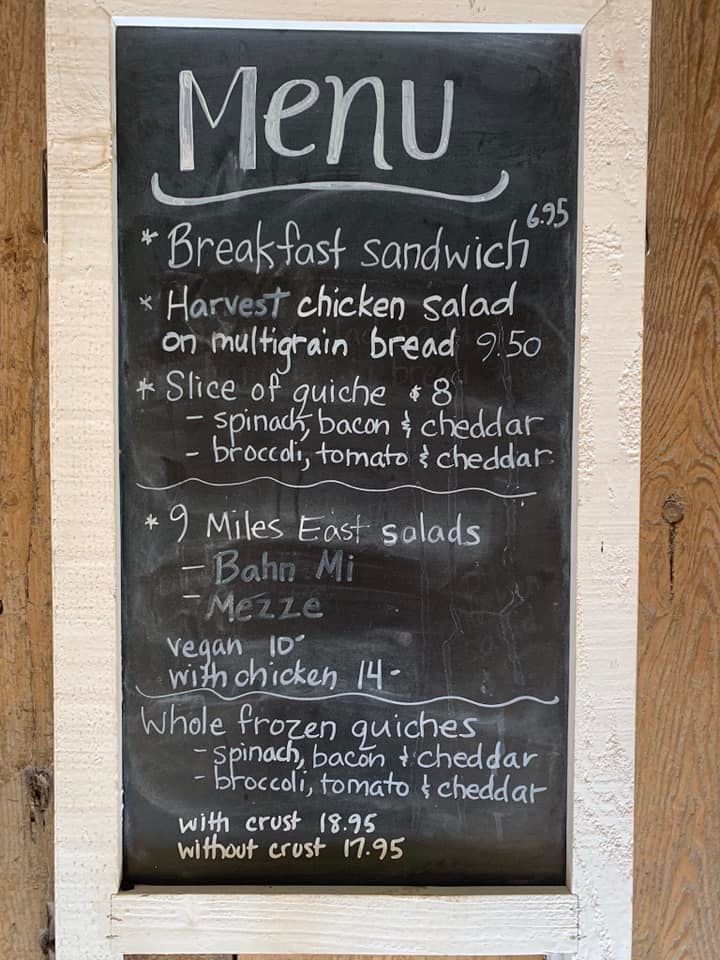 Menu
* Breakfast sandwich 6.95
* Harvest chicken salad
on multigrain bread 9.50
* Slice of quiche $8
- spinach, bacon & cheddar
- broccoli, tomato & cheddar
* 9 Miles East salads
- Bahn Mi
- Mezze
vegan 10-
with chicken 14-
Whole frozen quiches
- spinach, bacon & cheddar
- broccoli, tomato & cheddar
with crust 18.95
without crust 17.95